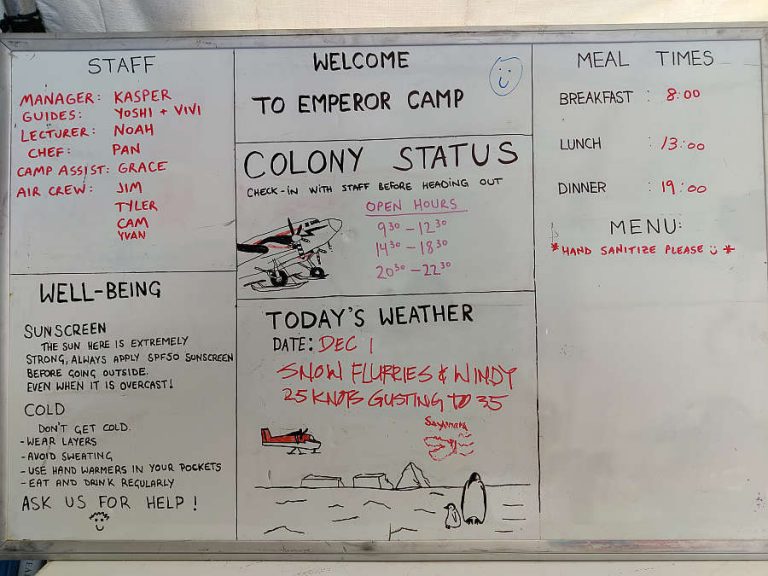 STAFF
MANAGER: KASPER
GUIDES: YOSHI + VIVI
LECTURER: NOAH
CHEF: PAN
CAMP ASSIST: GRACE
AIR CREW: JIM
TYLER
CAM
YVAN
WELL-BEING
SUNSCREEN
THE SUN HERE IS EXTREMELY
STRONG, ALWAYS APPLY SPF50 SUNSCREEN
BEFORE GOING OUTSIDE.
EVEN WHEN IT IS OVERCAST!
COLD
DON'T GET COLD.
- WEAR LAYERS
- AVOID SWEATING
- USE HAND WARMERS IN YOUR POCKETS
- EAT AND DRINK REGULARLY
ASK US FOR HELP!
WELCOME
TO EMPEROR CAMP
COLONY STATUS
CHECK-IN WITH STAFF BEFORE HEADING OUT
OPEN HOURS
9³⁰ - 12³⁰
14³⁰ - 18³⁰
20³⁰ - 22³⁰
TODAY'S WEATHER
DATE: DEC 1
SNOW FLURRIES & WINDY
25 KNOTS GUSTING TO 35
MEAL TIMES
BREAKFAST : 8:00
LUNCH : 13:00
DINNER : 19:00
MENU:
*HAND SANITIZE PLEASE *